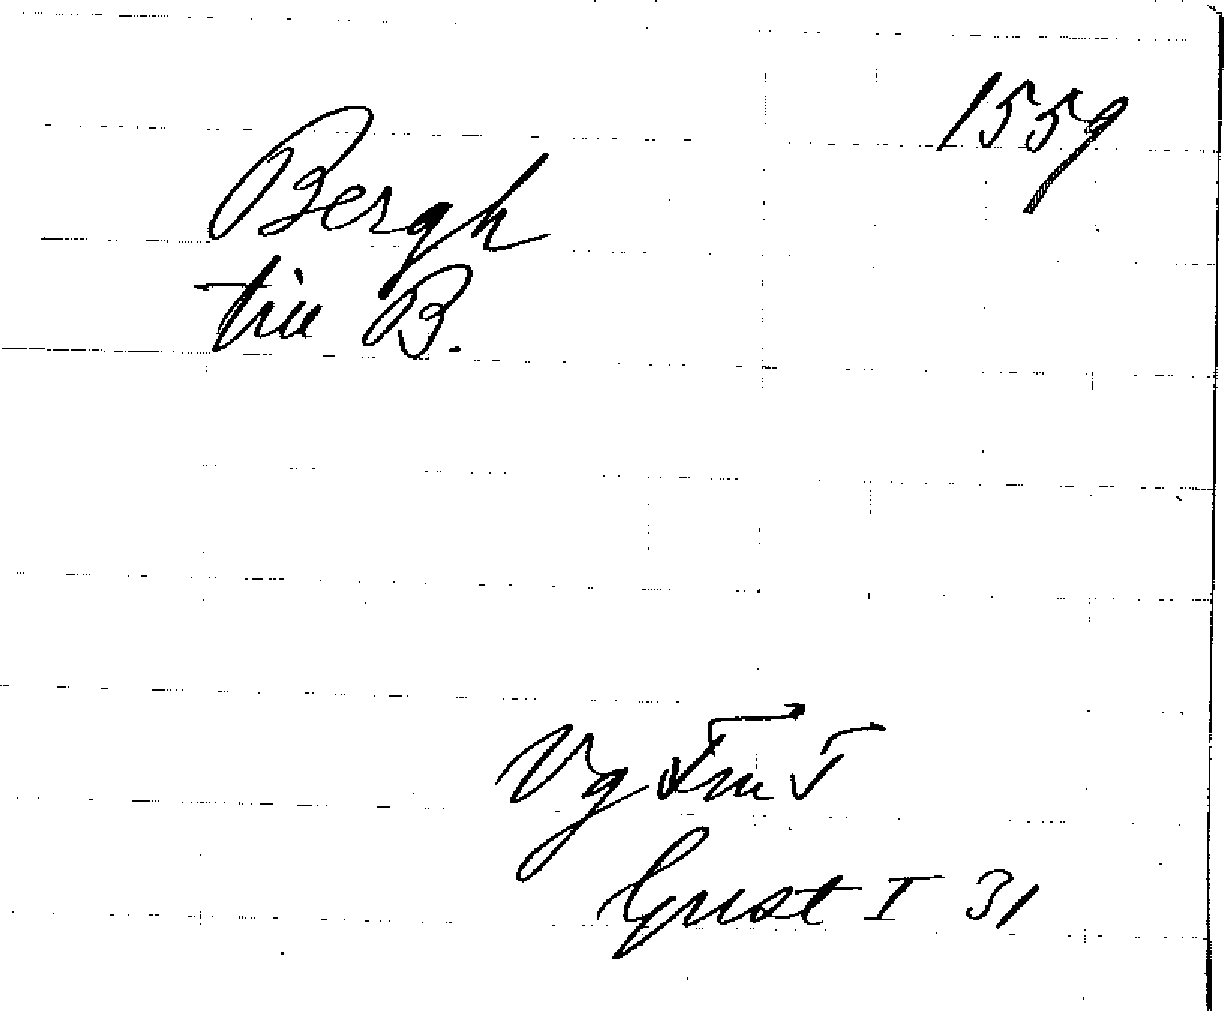 1559
Bergh
tiu B.
Vg Fm F
Gust I 31